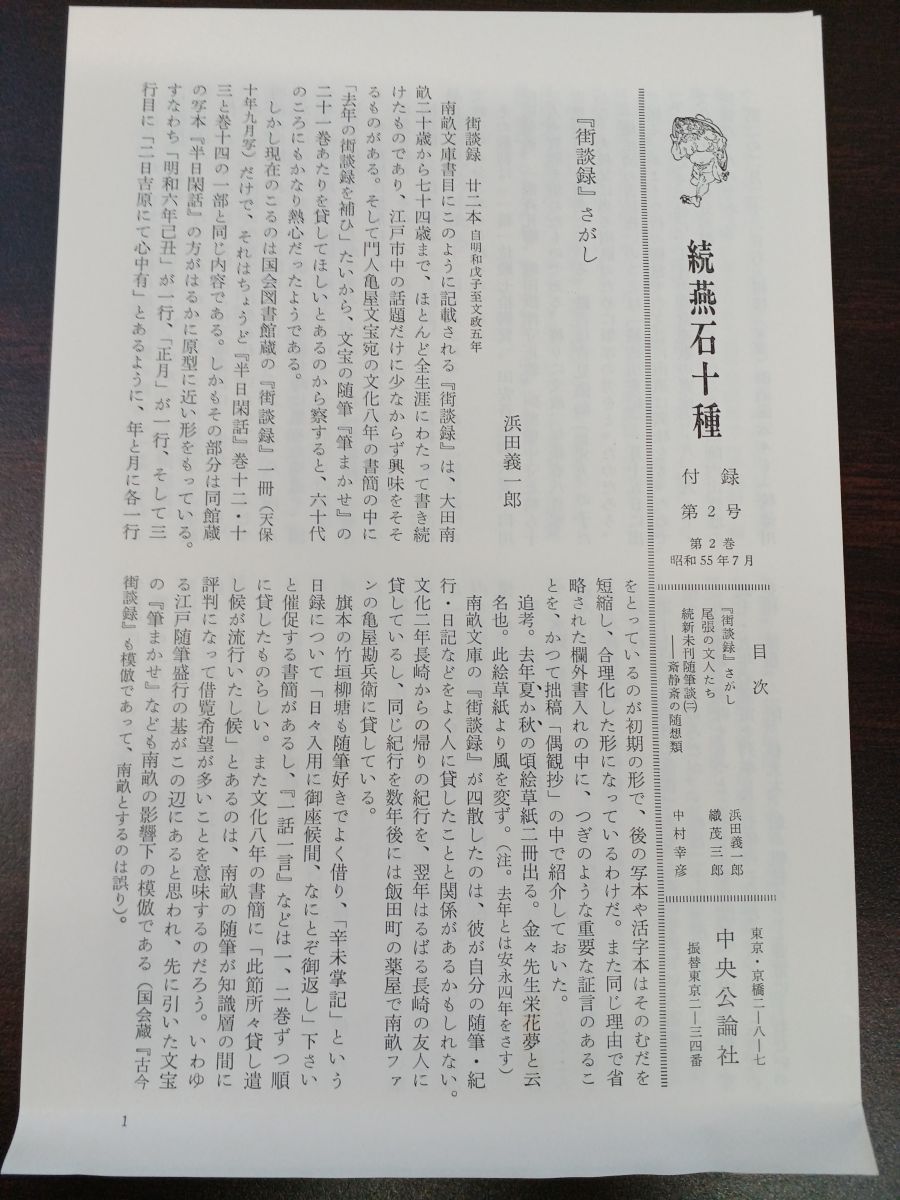 続燕石十種
付録
第2号
第2巻
昭和55年7月
目次
『街談録』さがし 浜田義一郎
尾張の文人たち 織茂三郎
続新未刊随筆談㈡ 中村幸彦
――斎静斎の随想類
東京・京橋二―八―七
中央公論社
振替東京二―三四番
『街談録』さがし
浜田義一郎
街談録 廿二本 自明和戊子至文政五年
南畝文庫書目にこのように記載される『街談録』は、大田南
畝二十歳から七十四歳まで、ほとんど全生涯にわたって書き続
けたものであり、江戸市中の話題だけに少なからず興味をそそ
るものがある。そして門人亀屋文宝宛の文化八年の書簡の中に
「去年の街談録を補ひ」たいから、文宝の随筆『筆まかせ』の
二十一巻あたりを貸してほしいとあるのから察すると、六十代
のころにもかなり熱心だったようである。
しかし現在のこるのは国会図書館蔵の『街談録』一冊（天保
十年九月写）だけで、それはちょうど『半日閑話』巻十二・十
三と巻十四の一部と同じ内容である。しかもその部分は同館蔵
の写本『半日閑話』の方がはるかに原型に近い形をもっている。
すなわち「明和六年己丑」が一行、「正月」が一行、そして三
行目に「二日吉原にて心中有」とあるように、年と月に各一行
をとっているのが初期の形で、後の写本や活字本はそのむだを
短縮し、合理化した形になっているわけだ。また同じ理由で省
略された欄外書入れの中に、つぎのような重要な証言のあるこ
とを、かつて拙稿「偶観抄」の中で紹介しておいた。
追考。去年夏か秋の頃絵草紙二冊出る。金々先生栄花夢と云
名也。此絵草紙より風を変ず。（注。去年とは安永四年をさす）
南畝文庫の『街談録』が四散したのは、彼が自分の随筆・紀
行・日記などをよく人に貸したことと関係があるかもしれない。
文化二年長崎からの帰りの紀行を、翌年はるばる長崎の友人に
貸しているし、同じ紀行を数年後には飯田町の薬屋で南畝ファ
ンの亀屋勘兵衛に貸している。
旗本の竹垣柳塘も随筆好きでよく借り、「辛未掌記」という
日録について「日々入用に御座候間、なにとぞ御返し」下さい
と催促する書簡があるし、『一話一言』などは一、二巻ずつ順
に貸したものらしい。また文化八年の書簡に「此節所々貸し遣
し候が流行いたし候」とあるのは、南畝の随筆が知識層の間に
評判になって借覧希望が多いことを意味するのだろう。いわゆ
る江戸随筆盛行の基がこの辺にあると思われ、先に引いた文宝
の『筆まかせ』なども南畝の影響下の模倣である（国会蔵『古今
街談録』も模倣であって、南畝とするのは誤り）。
1